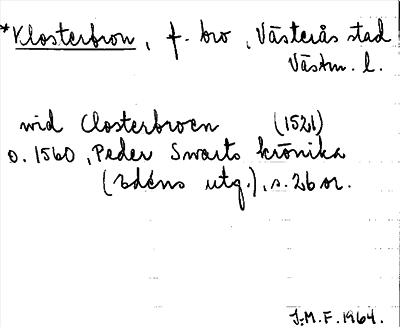 *Klosterbron, f. bro, Västerås stad
Västm. l.
wid Closterbroen (1521)
o. 1560, Peder Swarts krönika
(Edéns utg.), s. 26 or.
J.M.F. 1964.